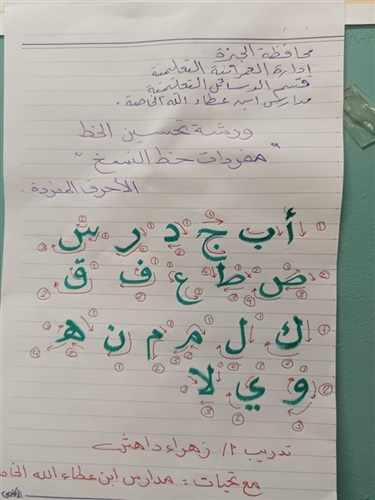 محافظة الجيزة
إدارة العمرانية التعليمية
قسم الوسائل التعليمية
مدارس ابن عطاء الله الخاصة.
ورشة تحسين الخط
"مفردات خط النسخ"
الأحرف المفردة.
أ ب ج د ر س
ص ط ع ف ق
ك ل م م ن ه
و ي لا
تدريب أ/ زهراء داهش
مع تحيات: مدارس ابن عطاء الله الخاصة